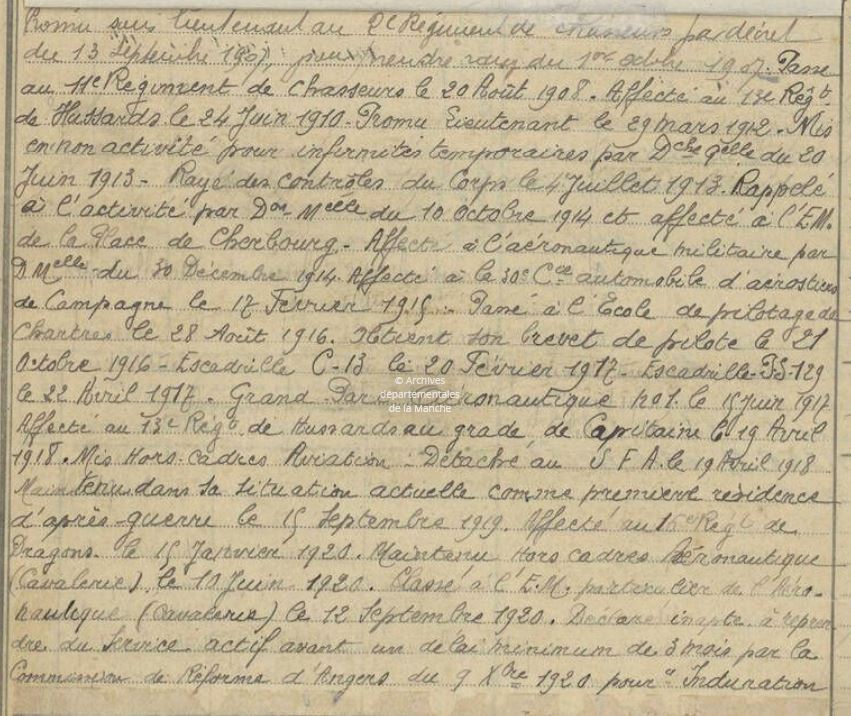 Promu sous lieutenant au 2e Régiment de chasseurs par décret
du 13 Septembre 1907, pour prendre rang du 1er octobre 1907. Passé
au 11e Régiment de Chasseurs le 20 Août 1908. Affecté au 13e Régt
de Hussards le 24 Juin 1910. Promu Lieutenant le 29 Mars 1912. Mis
en non activité pour infirmités temporaires par Dche Gelle du 20
Juin 1913 - Rayé des contrôles du Corps le 4 Juillet 1913. Rappelé
à l'activité par Don Melle du 10 Octobre 1914 et affecté à l'E.M.
de la Place de Cherbourg. Affecté à l'aéronautique militaire par
D Melle du 30 Décembre 1914. Affecté à la 30e Cie automobile d'aérostiers
de Campagne le 17 Février 1915. Passé à l'Ecole de pilotage de
Chartres le 28 Août 1916. Obtient son brevet de pilote le 21
Octobre 1916 - Escadrille C-13 le 20 Février 1917 - Escadrille 129
le 22 Avril 1917. Grand Parc Aéronautique no 1. le 15 Juin 1917
Affecté au 13e Régt de Hussards au grade de Capitaine le 19 Avril
1918. Mis Hors-cadres Aviation - Détaché au S F A. le 19 Avril 1918
Maintenu dans sa situation actuelle comme première résidence
d'après-guerre le 15 Septembre 1919. Affecté au Régt de
Dragons. le 15 Janvier 1920. Maintenu Hors cadres Aéronautique
(Cavalerie) le 10 Juin 1920. Classé à l'E.M. particulier de l'Aéro-
nautique (Cavalerie) le 12 Septembre 1920. Déclaré inapte à repren
dre du Service actif avant un délai minimum de 3 mois par la
Commission de Réforme d'Angers du 9 Xbre 1920 pour " Induration
© Archives
départementales
de la Manche